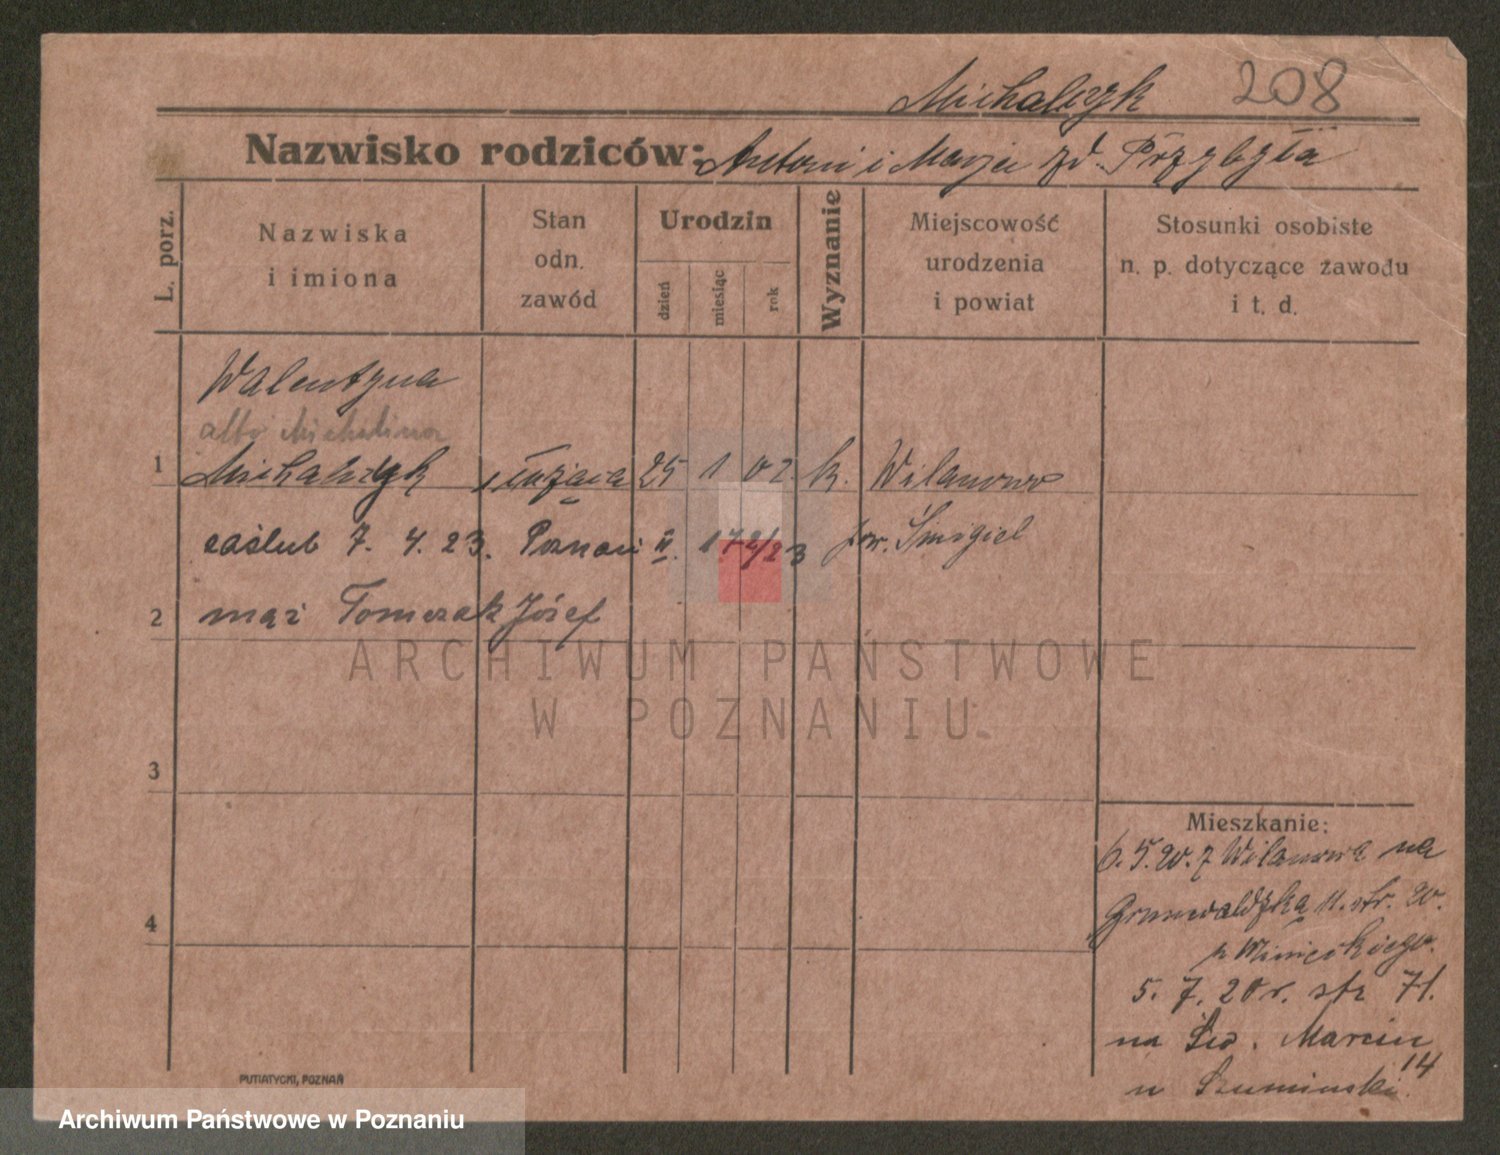 Michalczyk 208
Nazwisko rodziców: Antoni i Marja zd. Przybyła
L. porz.
Nazwiska
i imiona
Stan
odn.
zawód
Urodzin
dzień
miesiąc
rok
Wyznanie
Miejscowość
urodzenia
i powiat
Stosunki osobiste
n. p. dotyczące zawodu
i t. d.
Walentyna
albo Michalina
1 Michalczyk służąca 25 1 02. k. Wilanowo
zaślub 7. 4. 23. Poznań II. 172/23 pow. Śmigiel
2 mąż Tomczak Józef
ARCHIWUM PAŃSTWOWE
W POZNANIU
3
4
Mieszkanie:
6. 5. 20. z Wilanowa na
Grunwaldzką 11. str. 20.
5. 7. 20 r. str 71.
na Św. Marcin
14
u Szuminski.
PUTIATYCKI, POZNAŃ
Archiwum Państwowe w Poznaniu